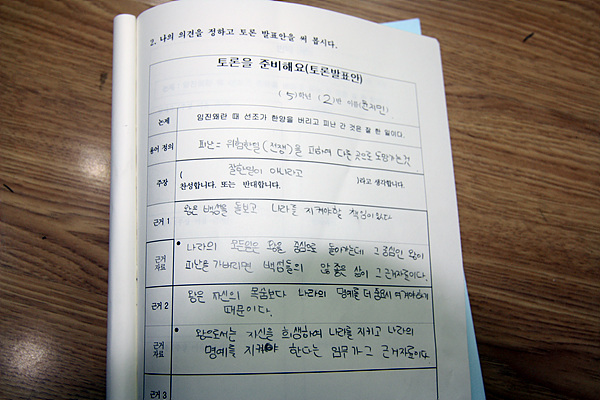 2. 나의 의견을 정하고 토론 발표안을 써 봅시다.
토론을 준비해요(토론발표안)
(5)학년 (2)반 이름(윤지민)
논제 임진왜란 때 선조가 한양을 버리고 피난 간 것은 잘 한 일이다.
용어 정의 피난= 위험한일(전쟁)을 피하여 다른 곳으로 도망가는것
주장 ( 잘한일이 아니라고 )라고 생각합니다.
찬성합니다. 또는 반대합니다.
근거 1 왕은 백성을 돌보고 나라를 지켜야할 책임이있다
근거 자료 • 나라의 모든일은 왕을 중심으로 돌아가는데 그 중심인 왕이
피난을 가버리면 백성들의 안 좋은 삶이 그 근거자료이다.
근거 2 왕은 자신의 목숨보다 나라의 명예를 더 중요시 여겨야하기
때문이다.
근거 자료 • 왕으로서는 자신을 희생하여 나라를 지키고 나라의
명예를 지켜야 한다는 임무가 그 근거자료이다
근거 3